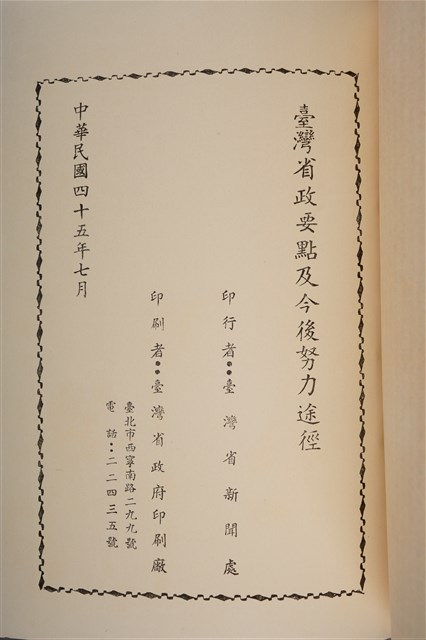 臺灣省政要點及今後努力途徑
印行者：臺灣省新聞處
印刷者：臺灣省政府印刷廠
臺北市西寧南路二九九號
電話：二二四三五號
中華民國四十五年七月